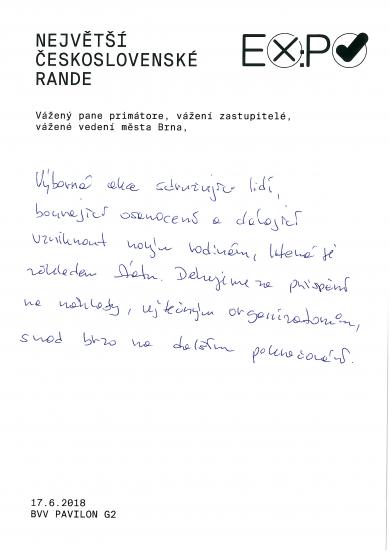 NEJVĚTŠÍ
ČESKOSLOVENSKÉ
RANDE
EX:PO
Vážený pane primátore, vážení zastupitelé,
vážené vedení města Brna,
Výborná akce sdružující lidí,
bourající osamocení a dávající
vzniknout novým rodinám, která je
základem státu. Děkujeme za přispění
na náklady, užitečným organizátorům,
snad brzo na dalším pokračování.
17.6.2018
BVV PAVILON G2